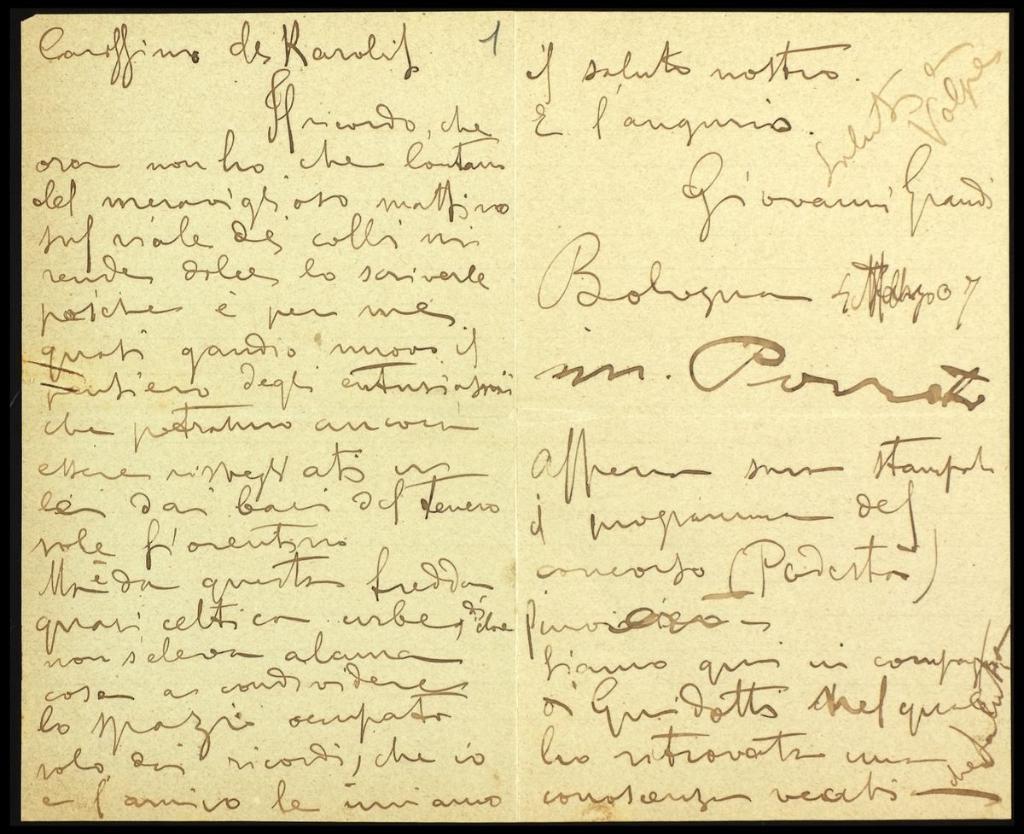 Carissimo de Karolis
1
Il ricordo, che
ora non ho che lontano
del meraviglioso mattino
sul viale dei colli mi
rende dolce lo scriverle
poiché è per me
quasi gaudio nuovo il
pensiero degli entusiasmi
che potranno ancora
essere risvegliati in
lei dai baci del tenero
sole fiorentino
Ma è da questa fredda
quasi celtica urbe, dove
non s'eleva alcuna
cosa a condividere
lo spazio occupato
solo dai ricordi, che io
e l'amico le inviamo
il saluto nostro.
E l'augurio.
saluti a
Volpe
Giovanni Grandi
Bologna 4 Marzo 07
m.
Appena sarà stampato
il programma del
concorso (Podestà)
Siamo qui in compagnia
di Guidotti nel quale
ho ritrovata una
conoscenza